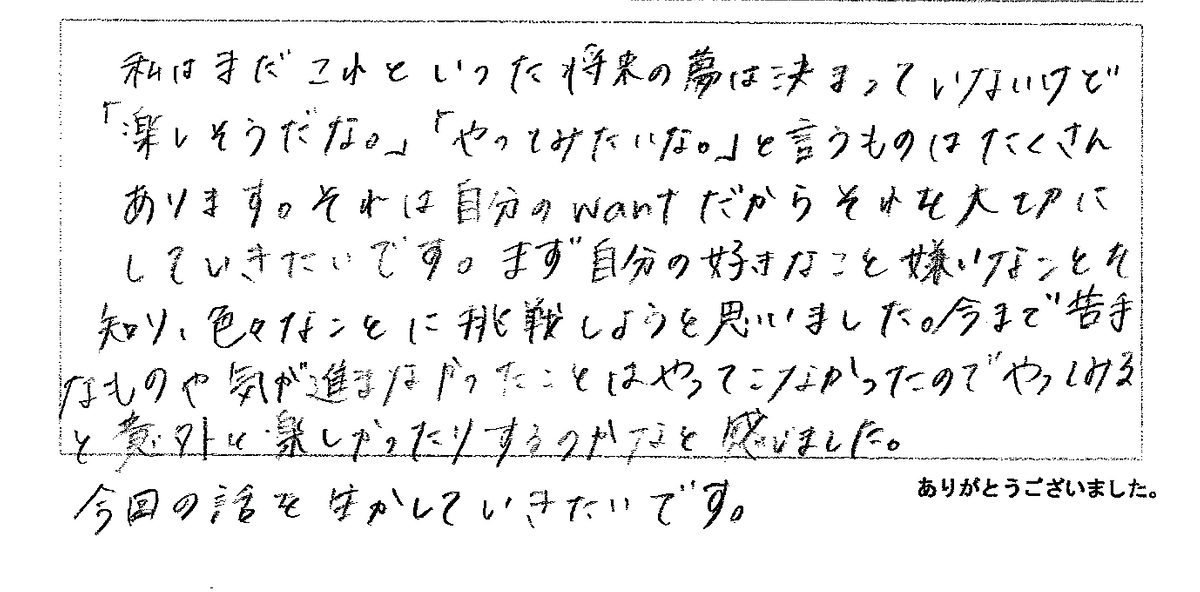 私はまだこれといった将来の夢は決まっていないけど
「楽しそうだな。」「やってみたいな。」と言うものはたくさん
あります。それは自分のwantだからそれを大切に
していきたいです。まず自分の好きなこと嫌いなことを
知り、色々なことに挑戦しようと思いました。今まで苦手
なものや気が進まなかったことはやってこなかったのでやってみる
と意外と楽しかったりするのかなと感じました。
今回の話を生かしていきたいです。
ありがとうございました。